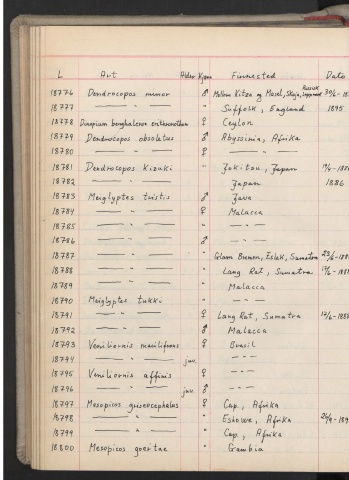 L Art Alder Kjønn Finnested Dato
18776 Dendrocopos minor ♂ Mellem Kitza og Masel, Russisk
18777 —— " —— " Suffolk, England 1895
18778 Dinopium benghalense ♀ Ceylon
18779 Dendrocopos obsoletus ♂ Abyssinia, Afrika
18780 —— " —— ♀ —— " ——
18781 Dendrocopos Kizuki " Japan
18782 —— " —— " Japan 1886
18783 Meiglyptes tristis ♂ Java
18784 —— " —— ♀ Malacca
18785 —— " —— " — " —
18786 —— " —— ♂ — " —
18787 —— " —— " Sumatra
18788 —— " —— " Lang Kat, Sumatra
18789 —— " —— " Malacca
18790 Meiglyptes tukki " — " —
18791 —— " —— ♀ Lang Kat, Sumatra
18792 —— " —— ♂ Malacca
18793 Veniliornis ♀ Brasil
18794 —— " —— juv. — " —
18795 Veniliornis affinis ♀ — " —
18796 —— " —— juv. ♂ — " —
18797 Mesopicos griseocephalus ♀ Cap, Afrika
18798 —— " —— " Eshowe, Afrika
18799 —— " —— " Cap, Afrika
18800 Mesopicos goertae " Gambia